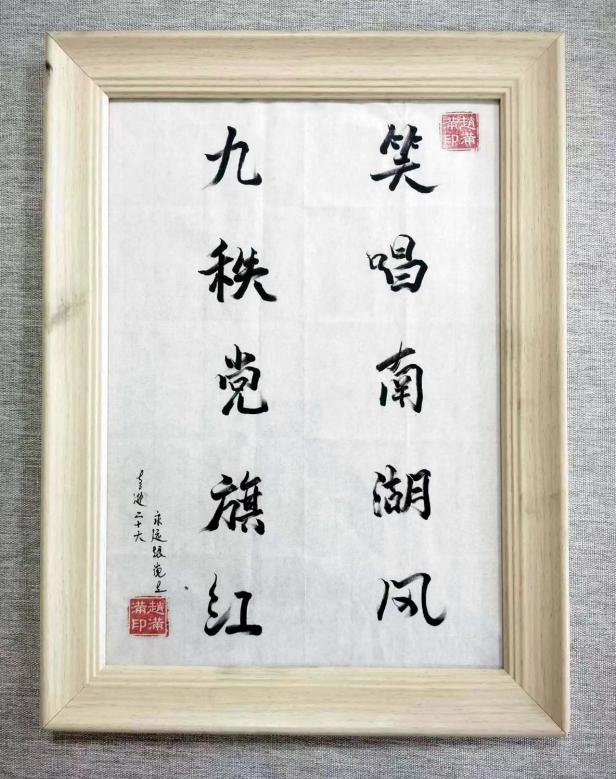 笑唱南湖风
九秩党旗红
永远跟党走
喜迎二十大
趙滿滿印
趙滿滿印